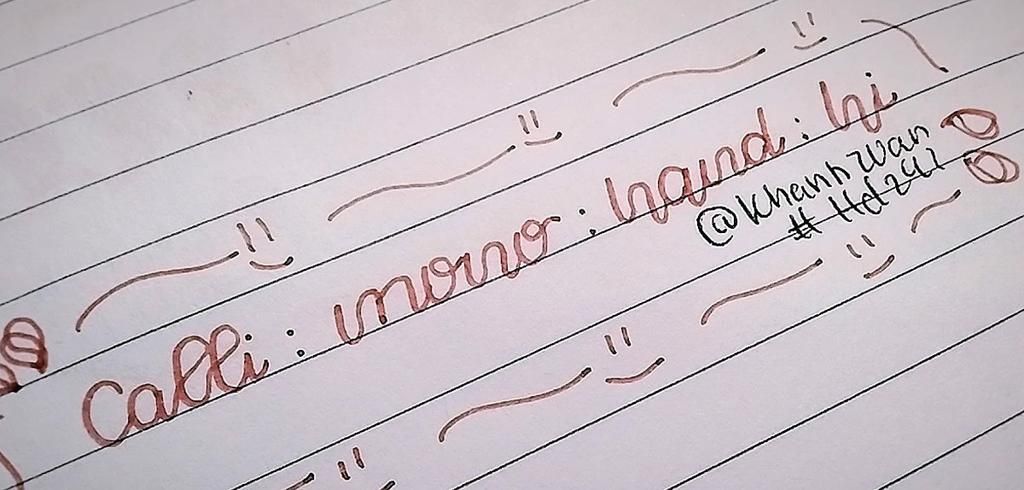 Calli : mono : hand : hi
@Khanhwan
# Hd2921